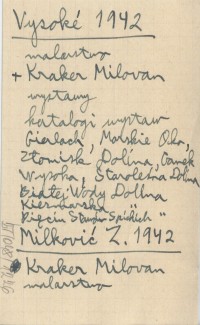 Vysoké 1942
malarstwo
+ Kraker Milovan
wystawy
katalogi wystaw
Gierlach, Morskie Oko,
Złomisk Dolina, Ganek
Wysoka, Staroleśna Dolina
Białej Wody Dolina
Kieżmarska "
Pięciu Stawów Spiskich "
Milković Z. 1942
Kraker Milovan
malarstwo